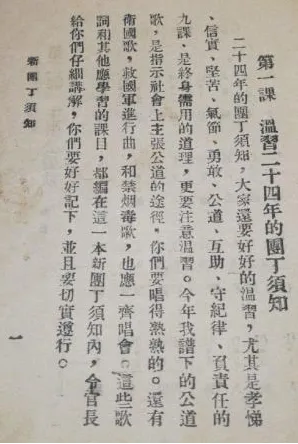 第一課　溫習二十四年的團丁須知
二十四年的團丁須知，大家還要好好的溫習，尤其是孝悌
、信實、堅苦、氣節、勇敢、公道、互助、守紀律、負責任的
九課、是終身需用的道理，更要注意溫習。今年我譜下的公道
歌，是指示社會上主張公道的途徑，你們要唱得熟熟的。還有
衛國歌，救國軍進行曲，和禁烟毒歌，也應一齊唱會。這些歌
詞和其他應學習的課目，都編在這一本新團丁須知內，令官長
給你們仔細講解，你們要好好記下，並且要切實遵行。
新團丁須知
一